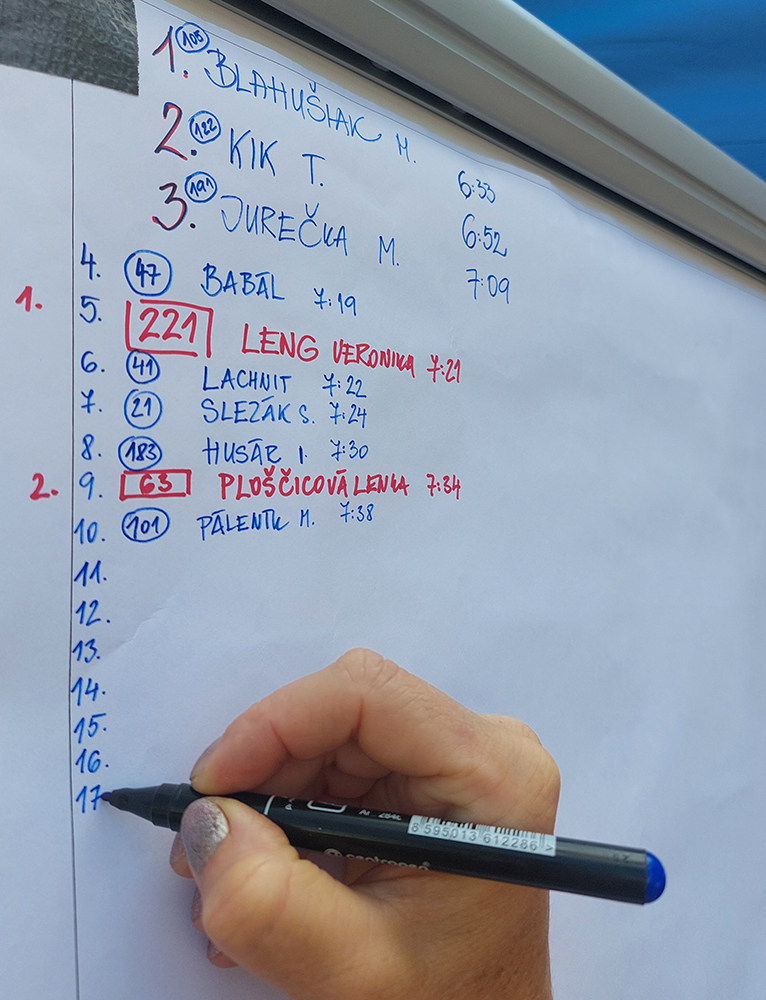 1. 105 BLAHUŠIAK M. 6:33
2. 122 KIK T. 6:52
3. 191 JUREČKA M. 7:09
4. 47 BABÁL 7:19
1. 5. 221 LENG VERONIKA 7:21
6. 41 LACHNIT 7:22
7. 21 SLEZÁK S. 7:24
8. 183 HUSÁR I. 7:30
2. 9. 63 PLOŠČICOVÁ LENKA 7:34
10. 101 PÁLENÍK M. 7:38
11.
12.
13.
14.
15.
16.
17
8 595013 612286 >
centropen